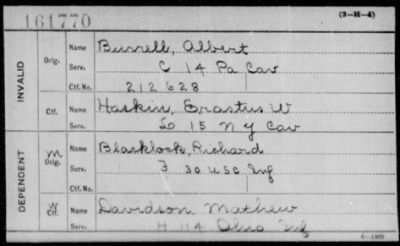 161770
(3-H-4)
INVALID
Orig. Name Burrell, Albert
Serv. C 14 Pa Cav
Ctf. No. 212628
Ctf. Name Haskin, Erastus W
Serv. 15 N Y Cav
DEPENDENT
M Orig. Name Blacklock, Richard
Serv. 30 U.S.C. Inf
Ctf. No.
W Ctf. Name Davidson Mathew
Serv. H 114 Ohio Inf